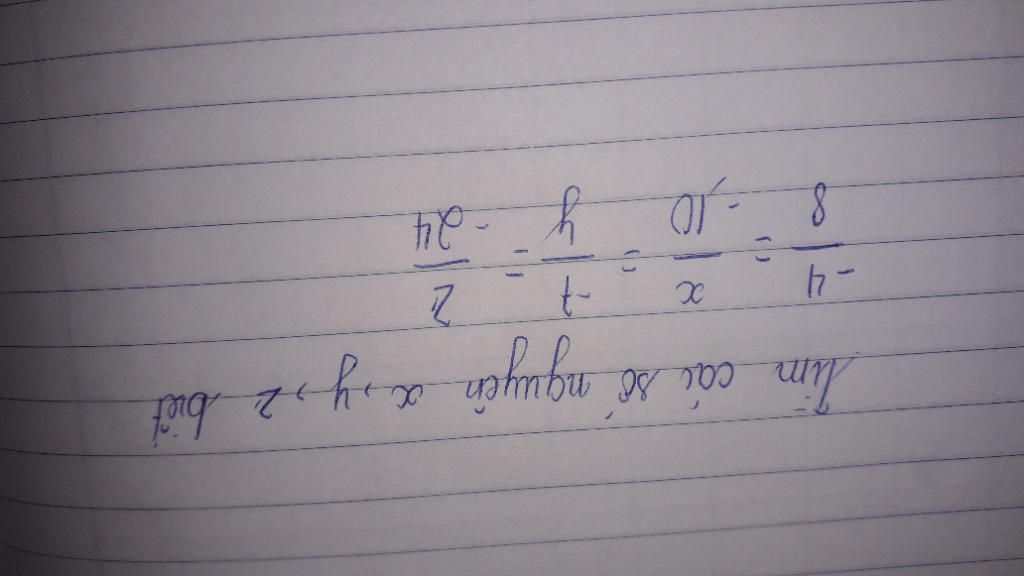 Tìm các số nguyên x, y, z biết
-4/8 = x/-10 = -7/y = z/-24